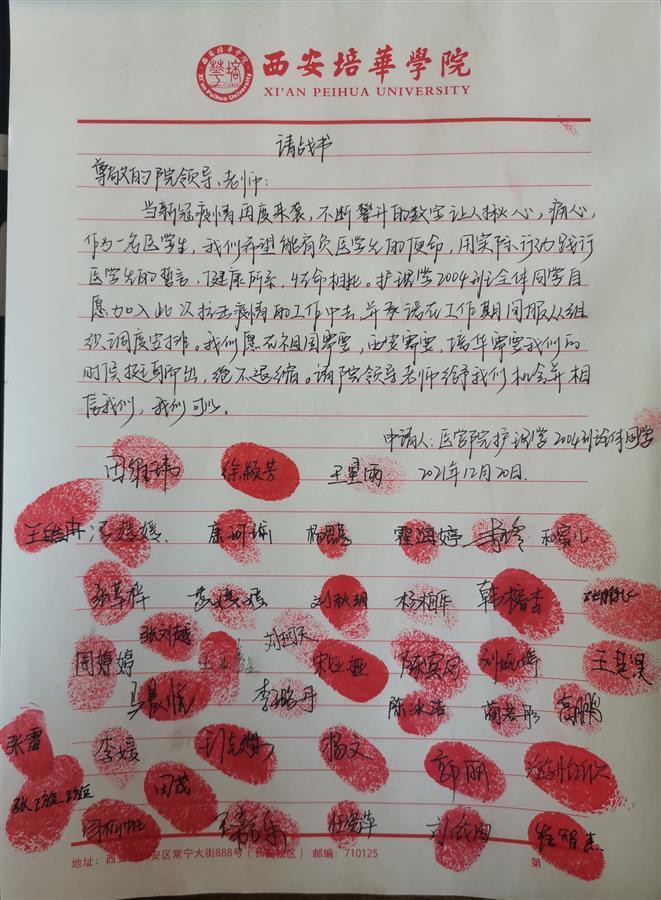 西安培华学院
XI'AN PEIHUA UNIVERSITY
西安培華學院
XI'AN PEIHUA UNIVERSITY
请战书
尊敬的院领导、老师：
当新冠疫情再度来袭，不断攀升的数字让人揪心，痛心，
作为一名医学生，我们希望能肩负医学生的使命，用实际行动践行
医学生的誓言，健康所系，性命相托。护理学2004班全体同学自
愿加入此次抗击疫情的工作中去，并承诺在工作期间服从组
织调度安排。我们愿在祖国需要，西安需要，培华需要我们的
时候挺身即出，绝不退缩。请院领导老师给予我们机会并相
信我们，我们可以。
申请人：医学院护理学2004班全体同学
2021年12月20日.
田维玮 徐颖芳 王星雨
冯媛媛 康珂瑜 霍海婷
张草桦 刘秋玥 杨梅华 韩榕杏
张刘越
周婷婷 宋娅娅 陈宾宾
马晨悦 李璐丹 陈冰洁 蔺若彤 高鹏鹃
张雷 李媛 杨文 郭丽
田茂
任雪萍
地址：西安 安区常宁大街888号（长安校区） 邮编：710125 第